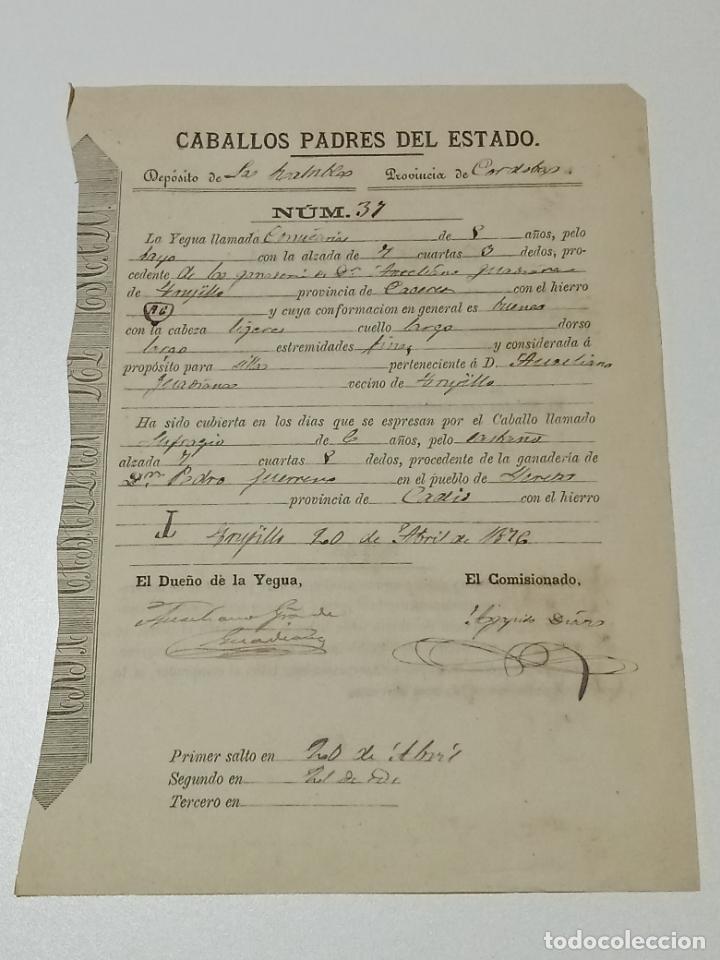 CABALLOS PADRES DEL ESTADO.
Depósito de La Rambla Provincia de Cordoba.
NÚM. 37
La Yegua llamada de 8 años, pelo
bayo con la alzada de 7 cuartas 3 dedos, pro-
cedente de la ganaderia de Dn Aureliano Guadiana
de Trujillo provincia de Caceres con el hierro
AG y cuya conformacion en general es buena
con la cabeza ligera cuello largo dorso
largo estremidades finas y considerada á
propósito para silla perteneciente á D. Aureliano
Guadiana vecino de Trujillo
Ha sido cubierta en los dias que se espresan por el Caballo llamado
Sufragio de 6 años, pelo castaño
alzada 7 cuartas 8 dedos, procedente de la ganadería de
Dn Pedro Guerrero en el pueblo de Jerez
provincia de Cadiz con el hierro
Trujillo 20 de Abril de 1876
El Dueño de la Yegua, El Comisionado,
Aureliano Gra de
Guadiana
Primer salto en 20 de Abril
Segundo en 21 de
Tercero en
todocoleccion
todocoleccion.net